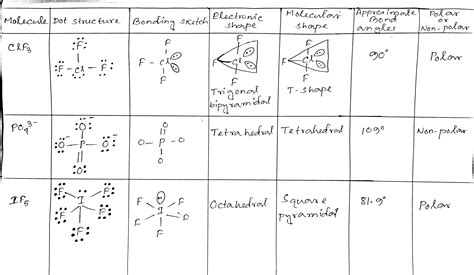 Molecule Dot structure Bonding sketch Electronic shape Molecular shape Approximate Bond angles Polar or Non-polar
ClF₃ :F: :F-Cl-F: F-Cl F F F Cl F Trigonal bipyramidal F F Cl F T-shape 90° Polar
PO₄³⁻ :O: :O-P-O: :O: O O-P-O O Tetrahedral Tetrahedral 109° Non-polar
IF₅ F F F I F F F F F I F F Octahedral Square pyramidal 81.9° Polar